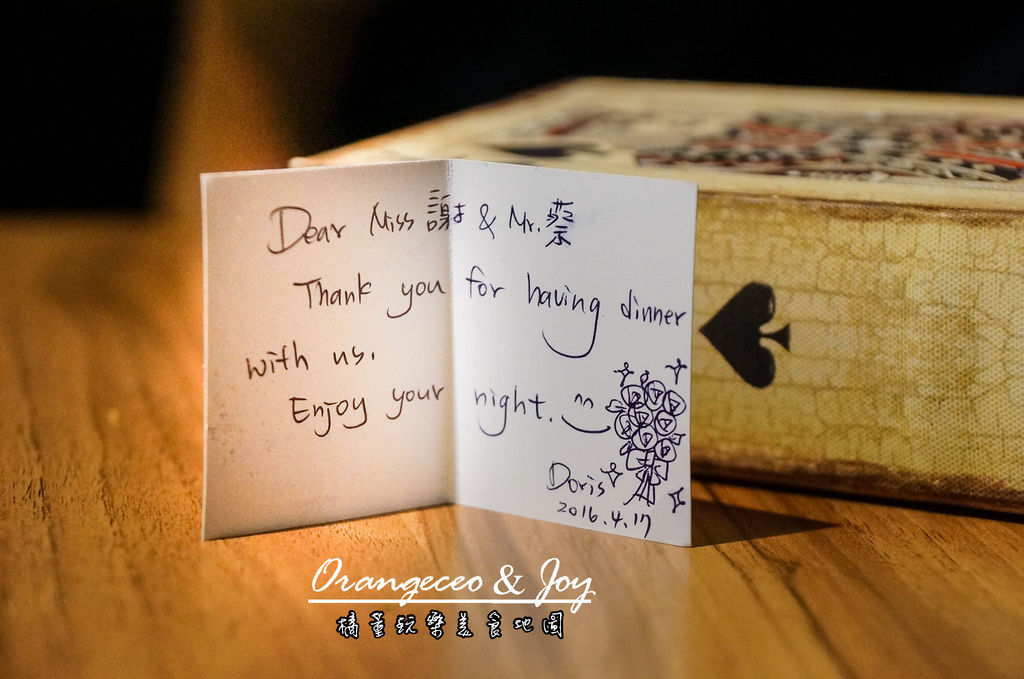 Dear Miss 謝 & Mr. 蔡
Thank you for having dinner
with us.
Enjoy your night.
Doris
2016.4.17
Orangeceo & Joy
橘董玩樂美食地圖